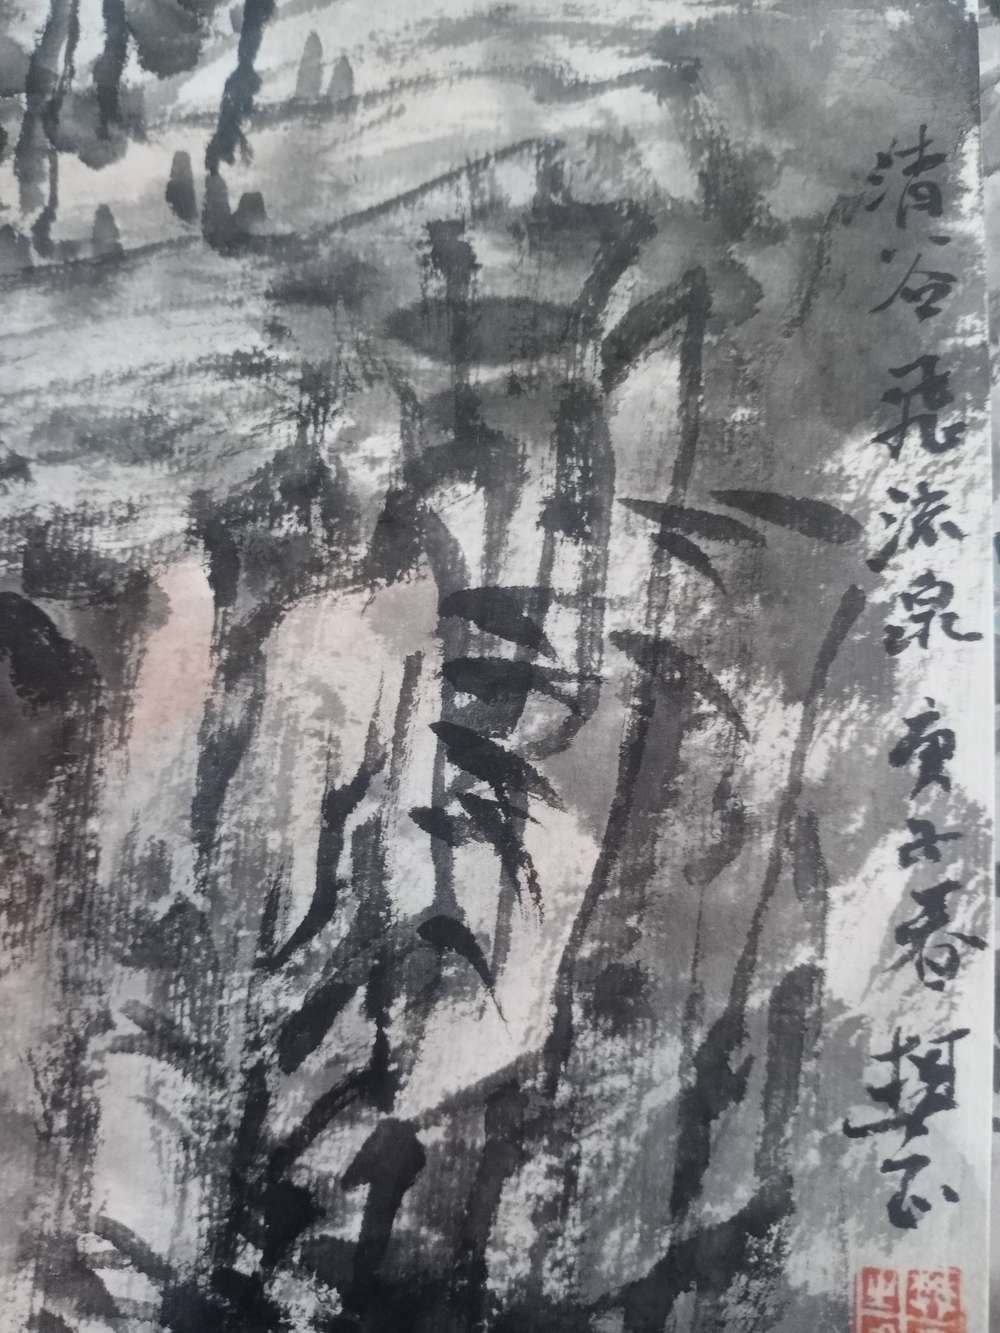 清谷飛流泉 庚子春